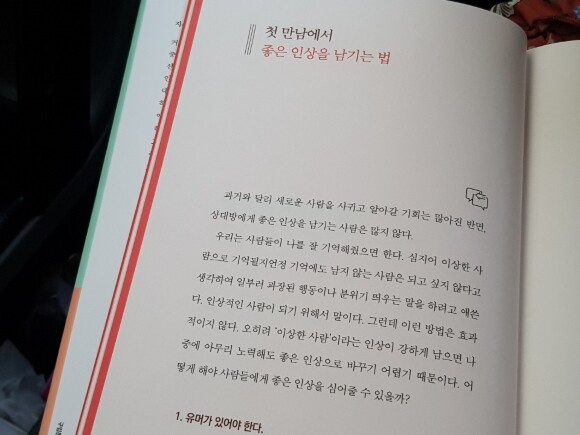 첫 만남에서
좋은 인상을 남기는 법
과거와 달리 새로운 사람을 사귀고 알아갈 기회는 많아진 반면,
상대방에게 좋은 인상을 남기는 사람은 많지 않다.
우리는 사람들이 나를 잘 기억해줬으면 한다. 심지어 이상한 사
람으로 기억될지언정 기억에도 남지 않는 사람은 되고 싶지 않다고
생각하여 일부러 과장된 행동이나 분위기 띄우는 말을 하려고 애쓴
다. 인상적인 사람이 되기 위해서 말이다. 그런데 이런 방법은 효과
적이지 않다. 오히려 '이상한 사람'이라는 인상이 강하게 남으면 나
중에 아무리 노력해도 좋은 인상으로 바꾸기 어렵기 때문이다. 어
떻게 해야 사람들에게 좋은 인상을 심어줄 수 있을까?
1. 유머가 있어야 한다.